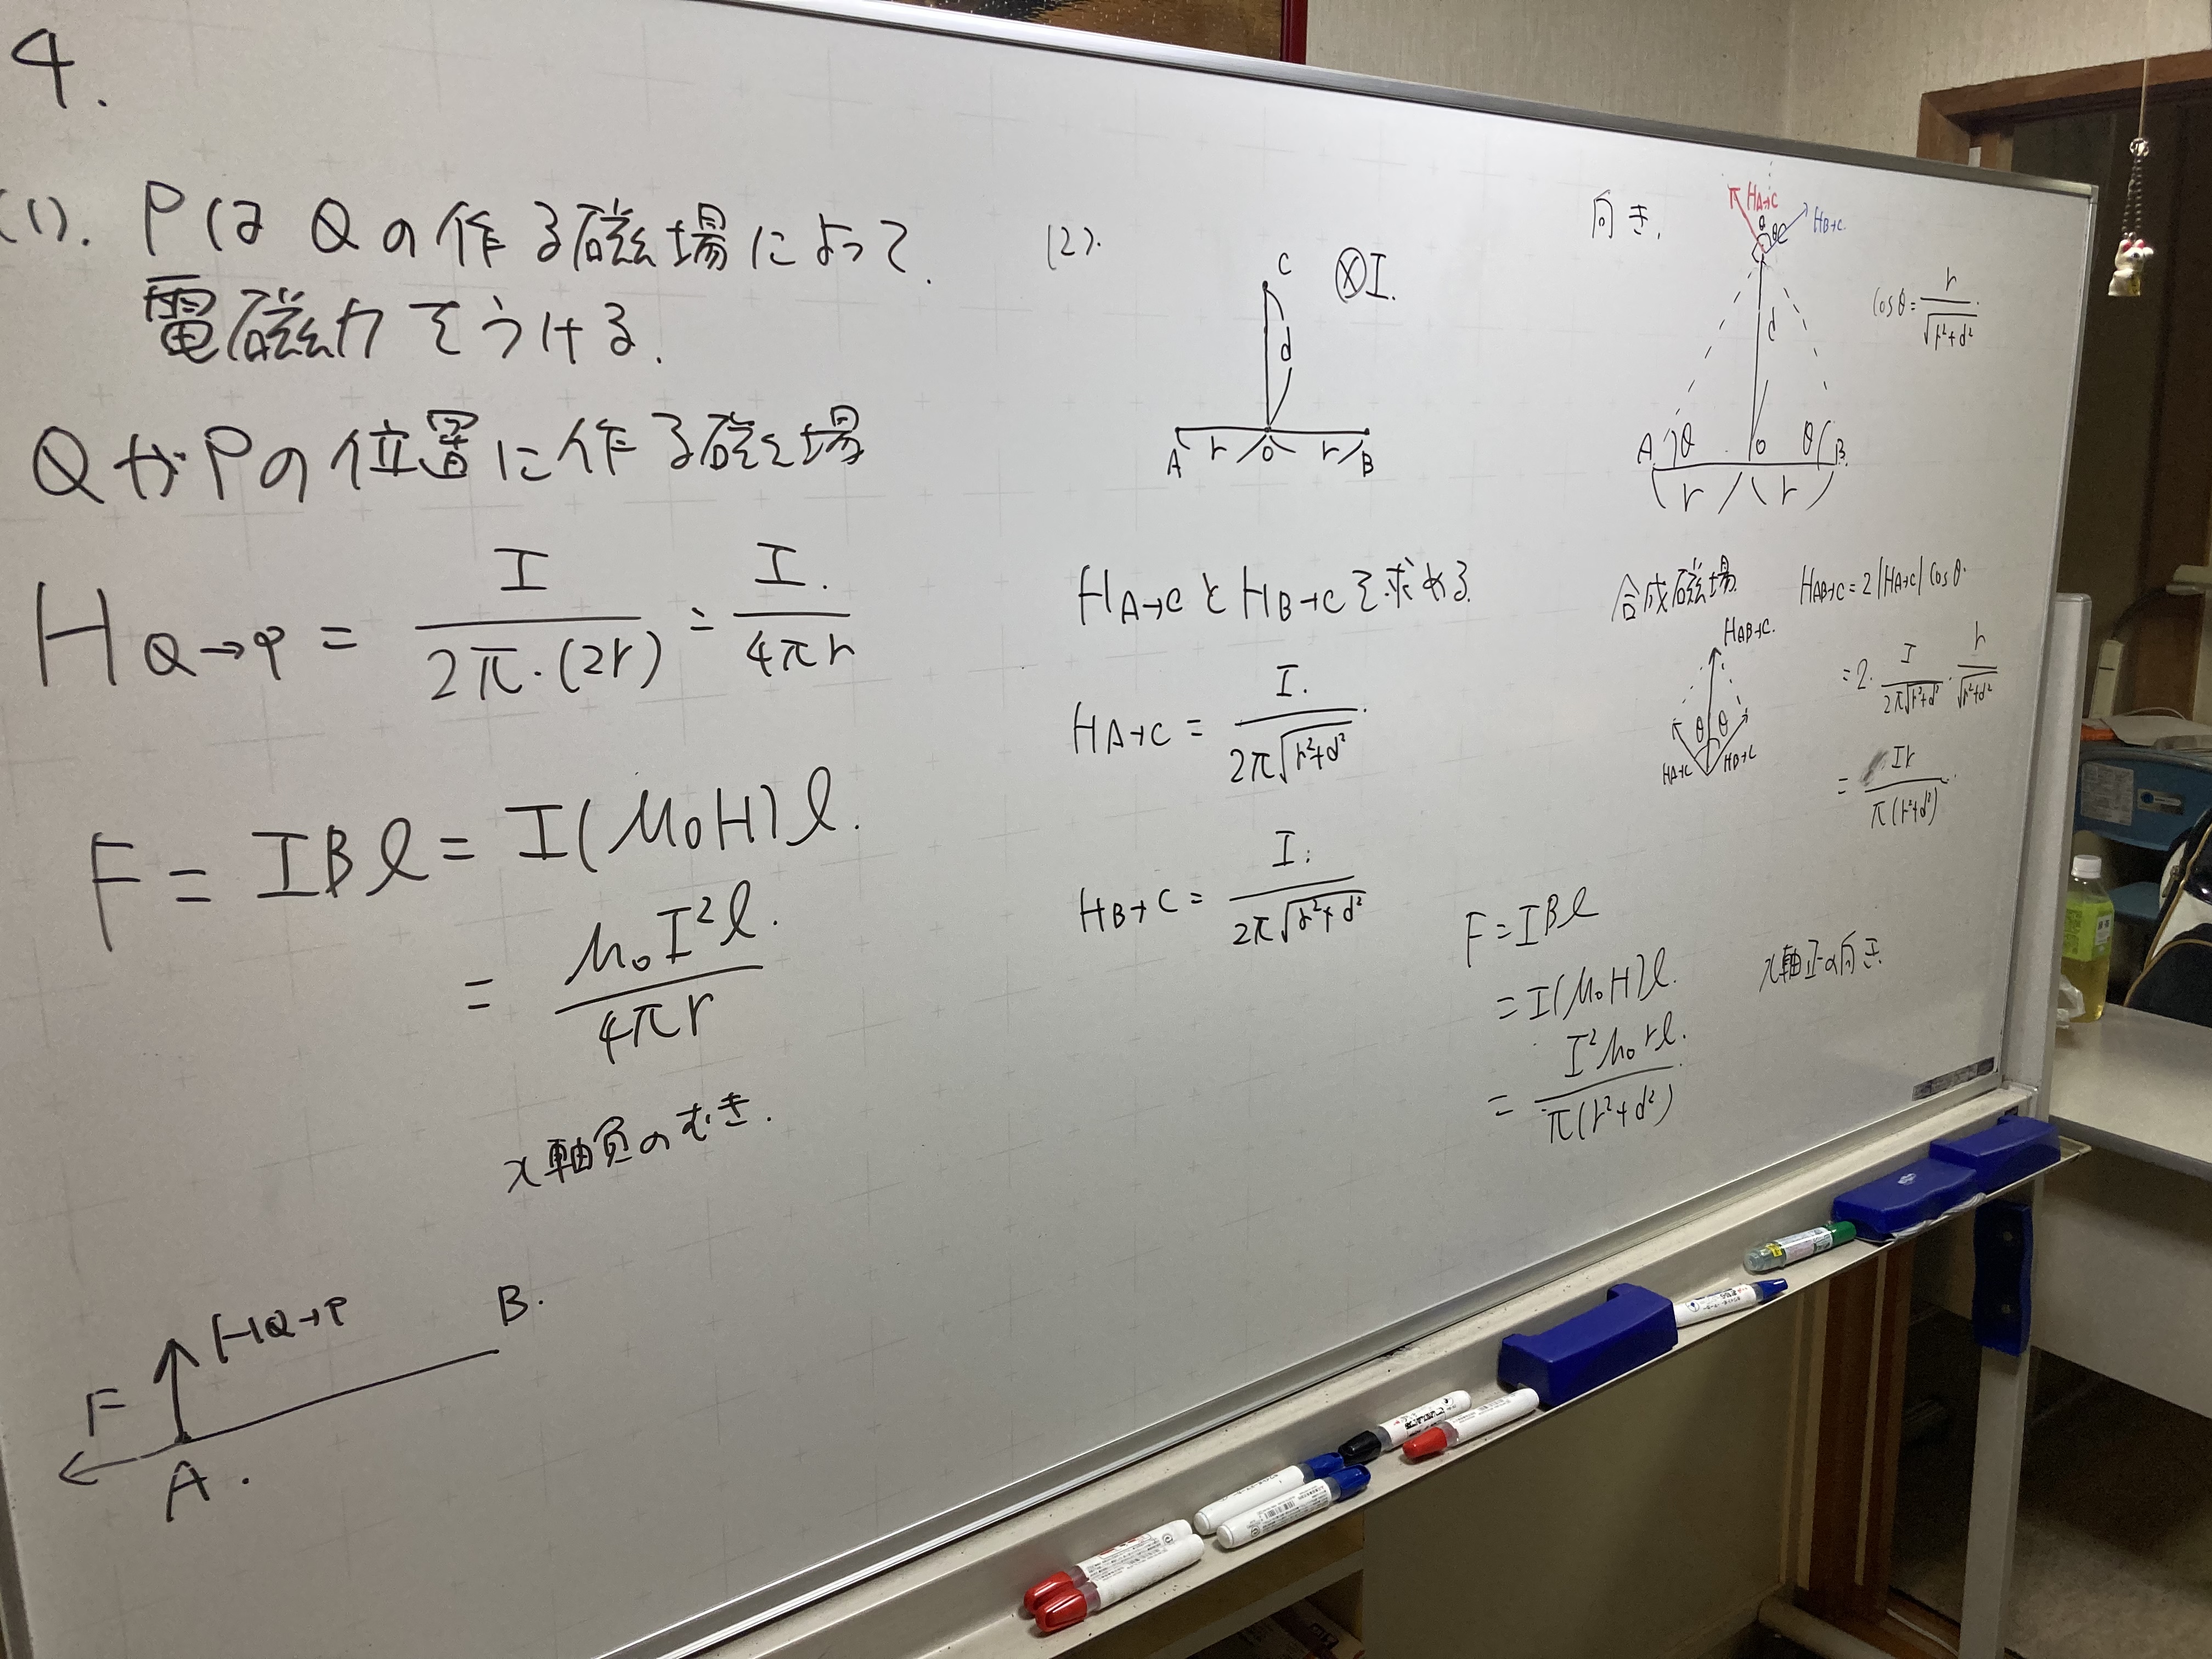 4.
(1). PはQの作る磁場によって
電磁力をうける.
QがPの位置に作る磁場
H Q→P = I / 2π・(2r) = I / 4πr
F = IBl = I(μ₀H)l.
= μ₀I²l / 4πr
x軸負のむき.
HQ→P
B.
F
A.
(2).
C
⊗I.
d
A r O r B
HA→CとHB→Cを求める.
HA→C = I / 2π√r²+d²
HB→C = I / 2π√r²+d²
向き.
HA→C
HB→C
θ θ
C
d
cosθ = r / √r²+d²
A θ O θ B
r r
合成磁場
HAB→C = 2|HA→C|cosθ
HAB→C
= 2・I / 2π√r²+d² ・ r / √r²+d²
θ θ
HA→C HB→C
= Ir / π(r²+d²)
F = IBl
= I(μ₀H)l.
x軸正の向き.
= I²μ₀rl / π(r²+d²)